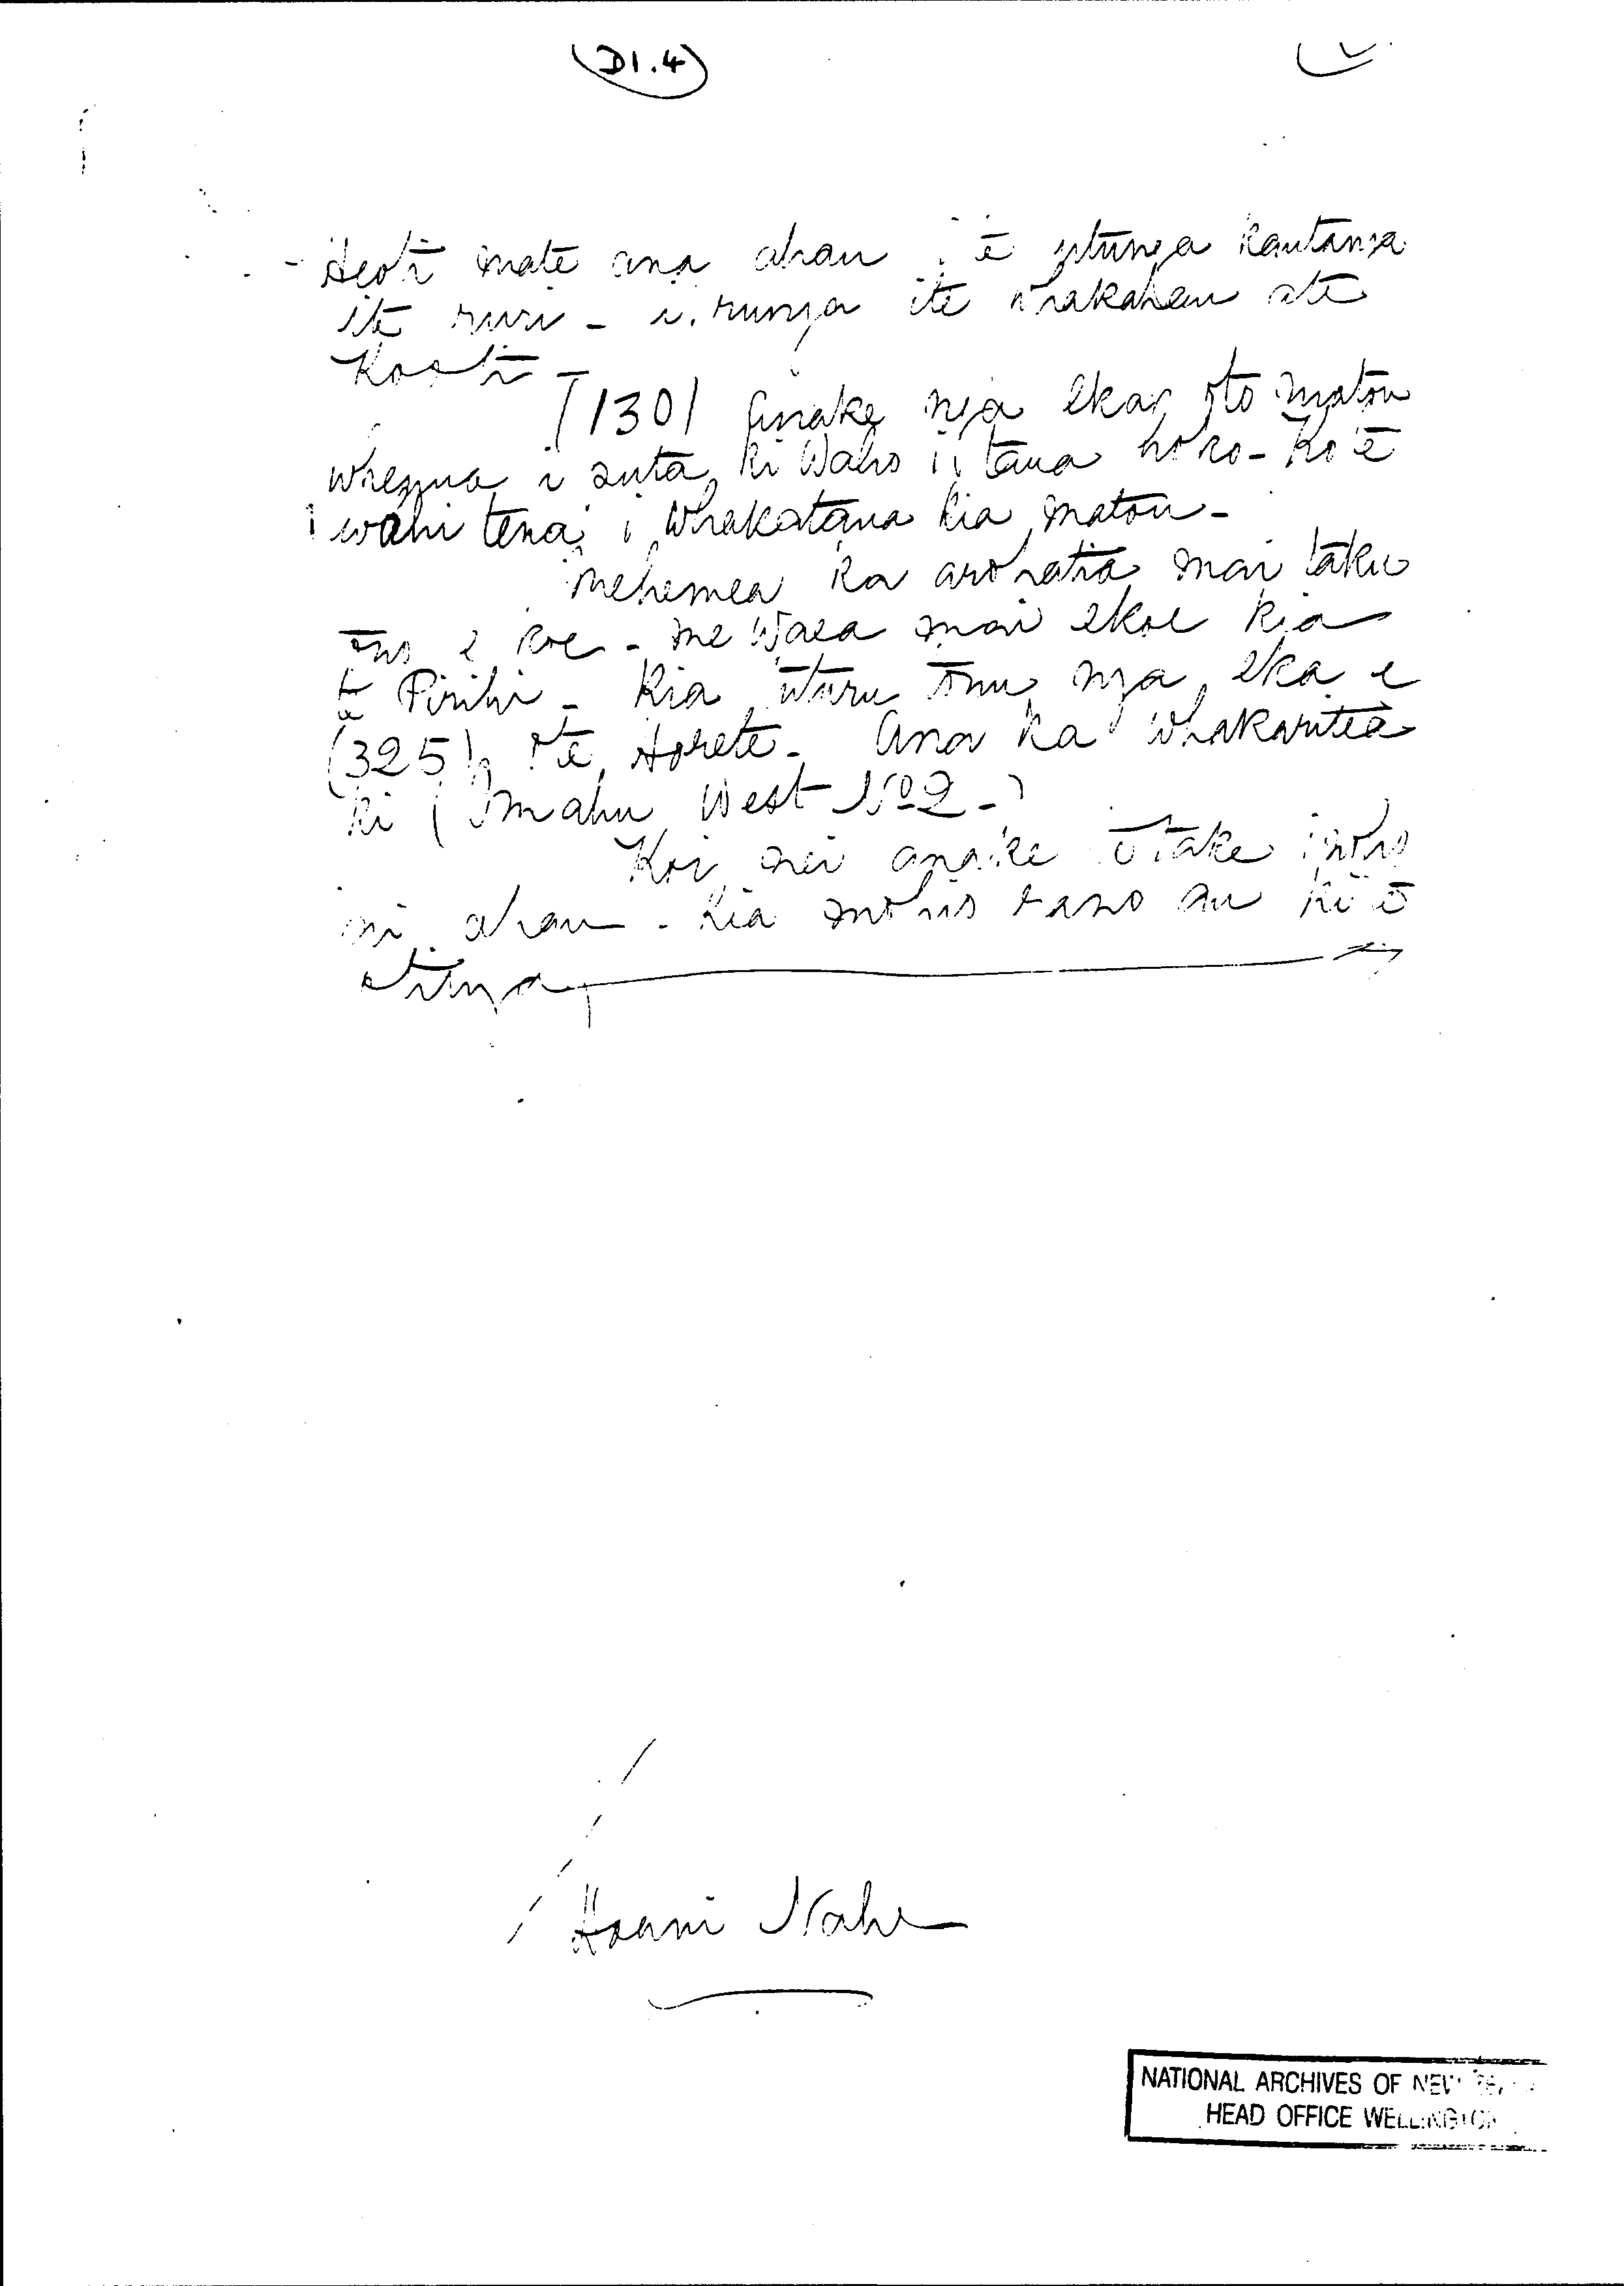 (D1.4)
Heoti mate ana ahau i e utunga kautanga
ite ruri - i runga ite whakahau ate
Kooti -
(130) anake nga eka oto matou
whenua i uta ki Waho i taua hoko - Ko e
wahi tena i Whakatana kia matou -
Mehemea ka arohatia mai taku
tono e koe - me Waea mai ekoe kia
te Pirihi - Kia uturu tonu nga eka e
(325) ote Horete - Ana ka Whakaritea
ki (Omahu West No 2 -)
Koi nei anake o take i
ni ahau - kia mohio ano au ki o
Hoani Nahe
NATIONAL ARCHIVES OF NEW
HEAD OFFICE WELLINGTON